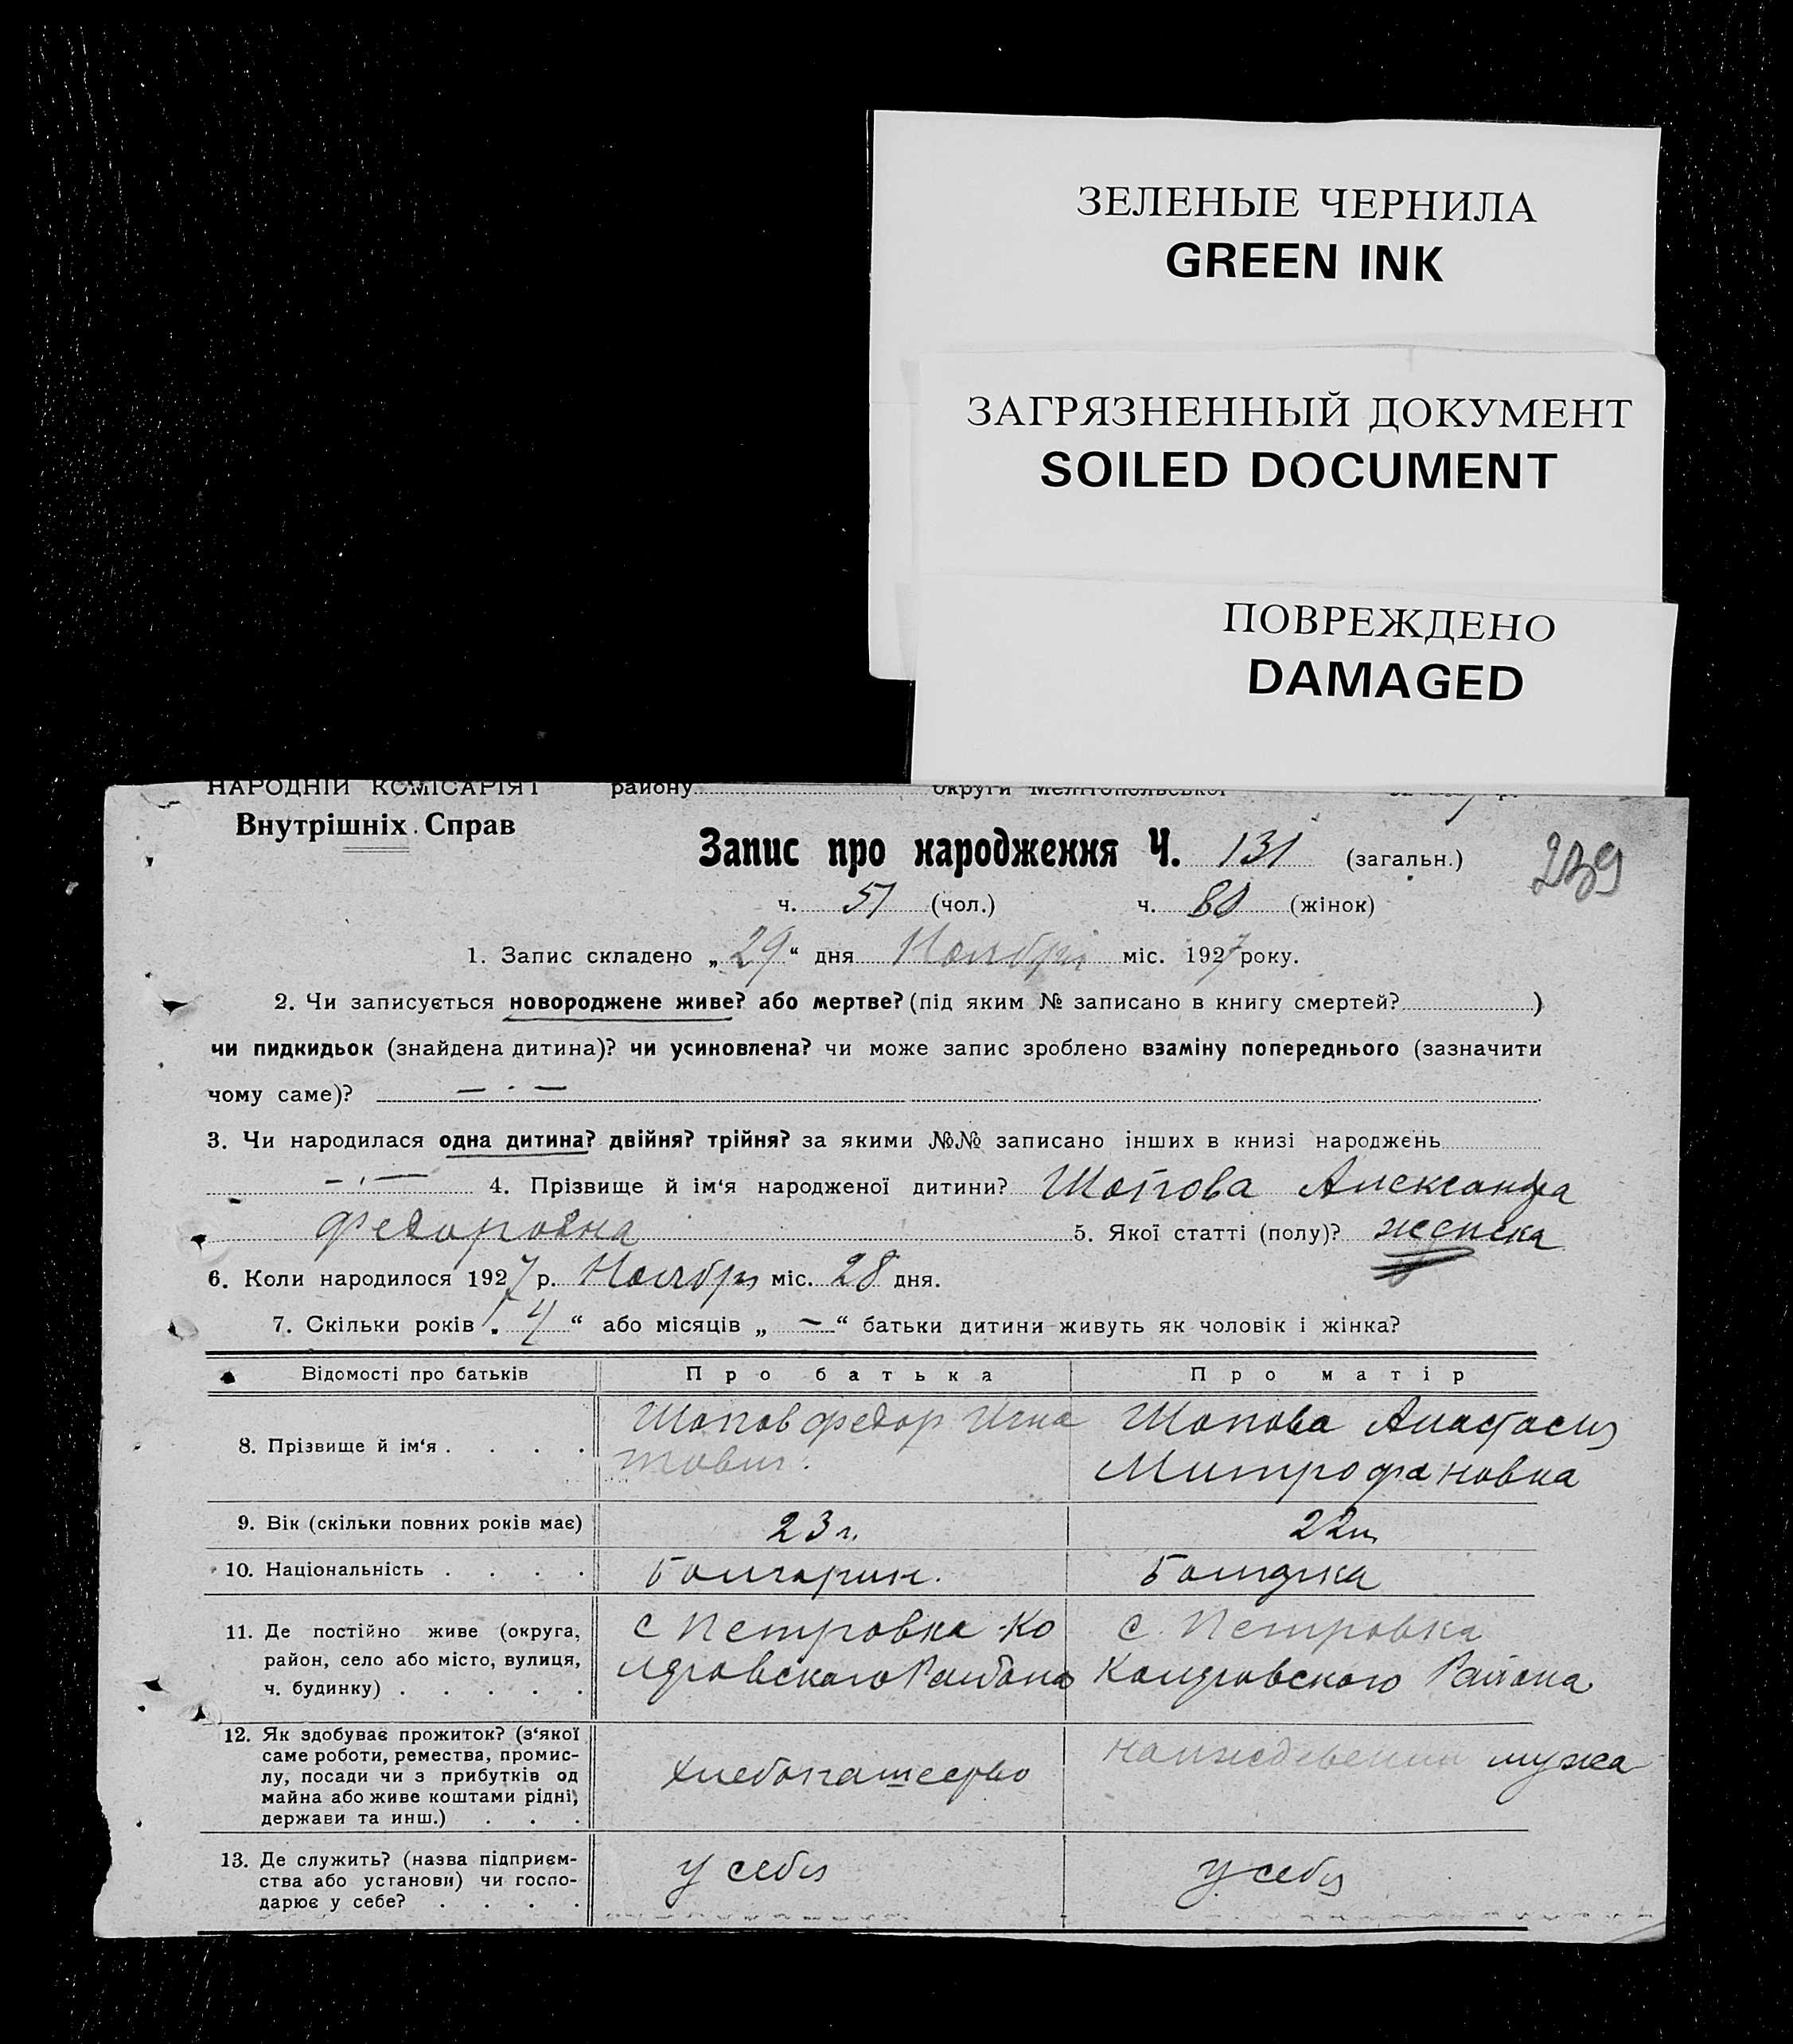 ЗЕЛЕНЫЕ ЧЕРНИЛА
GREEN INK
ЗАГРЯЗНЕННЫЙ ДОКУМЕНТ
SOILED DOCUMENT
ПОВРЕЖДЕНО
DAMAGED
НАРОДНІЙ КОМІСАРІЯТ району округи Мелітопольської
Внутрішніх Справ
Запис про народження Ч. 131 (загальн.) 239
ч. 51 (чол.) ч. 80 (жінок)
1. Запис складено „29“ дня Ноября міс. 1927 року.
2. Чи записується новороджене живе? або мертве? (під яким № записано в книгу смертей? )
чи пидкидьок (знайдена дитина)? чи усиновлена? чи може запис зроблено взаміну попереднього (зазначити
чому саме)? — · —
3. Чи народилася одна дитина? двійня? трійня? за якими №№ записано інших в книзі народжень
— · — 4. Прізвище й ім‘я народженої дитини? Шопова Александра
Федоровна 5. Якої статті (полу)? женска
6. Коли народилося 1927 р. Ноября міс. 28 дня.
7. Скільки років „4“ або місяців „—“ батьки дитини живуть як чоловік і жінка?
Відомості про батьків Про батька Про матір
8. Прізвище й ім‘я . . . . Шопов Федор Игна Шопова Анастасия
тович. Митрофановна
9. Вік (скільки повних років має) 23 г. 22
10. Національність . . . . Болгарин. Болгарка
11. Де постійно живе (округа, с Петровка Ко с. Петровка
район, село або місто, вулиця, ларовского Района Коларовского Района
ч. будинку) . . . . .
12. Як здобуває прожиток? (з‘якої
саме роботи, ремества, промис- Хлебопашество на иждевении мужа
лу, посади чи з прибутків од
майна або живе коштами рідні,
держави та инш.) . . .
13. Де служить? (назва підприєм- у себя у себя
ства або установи) чи госпо-
дарює у себе? . . . .